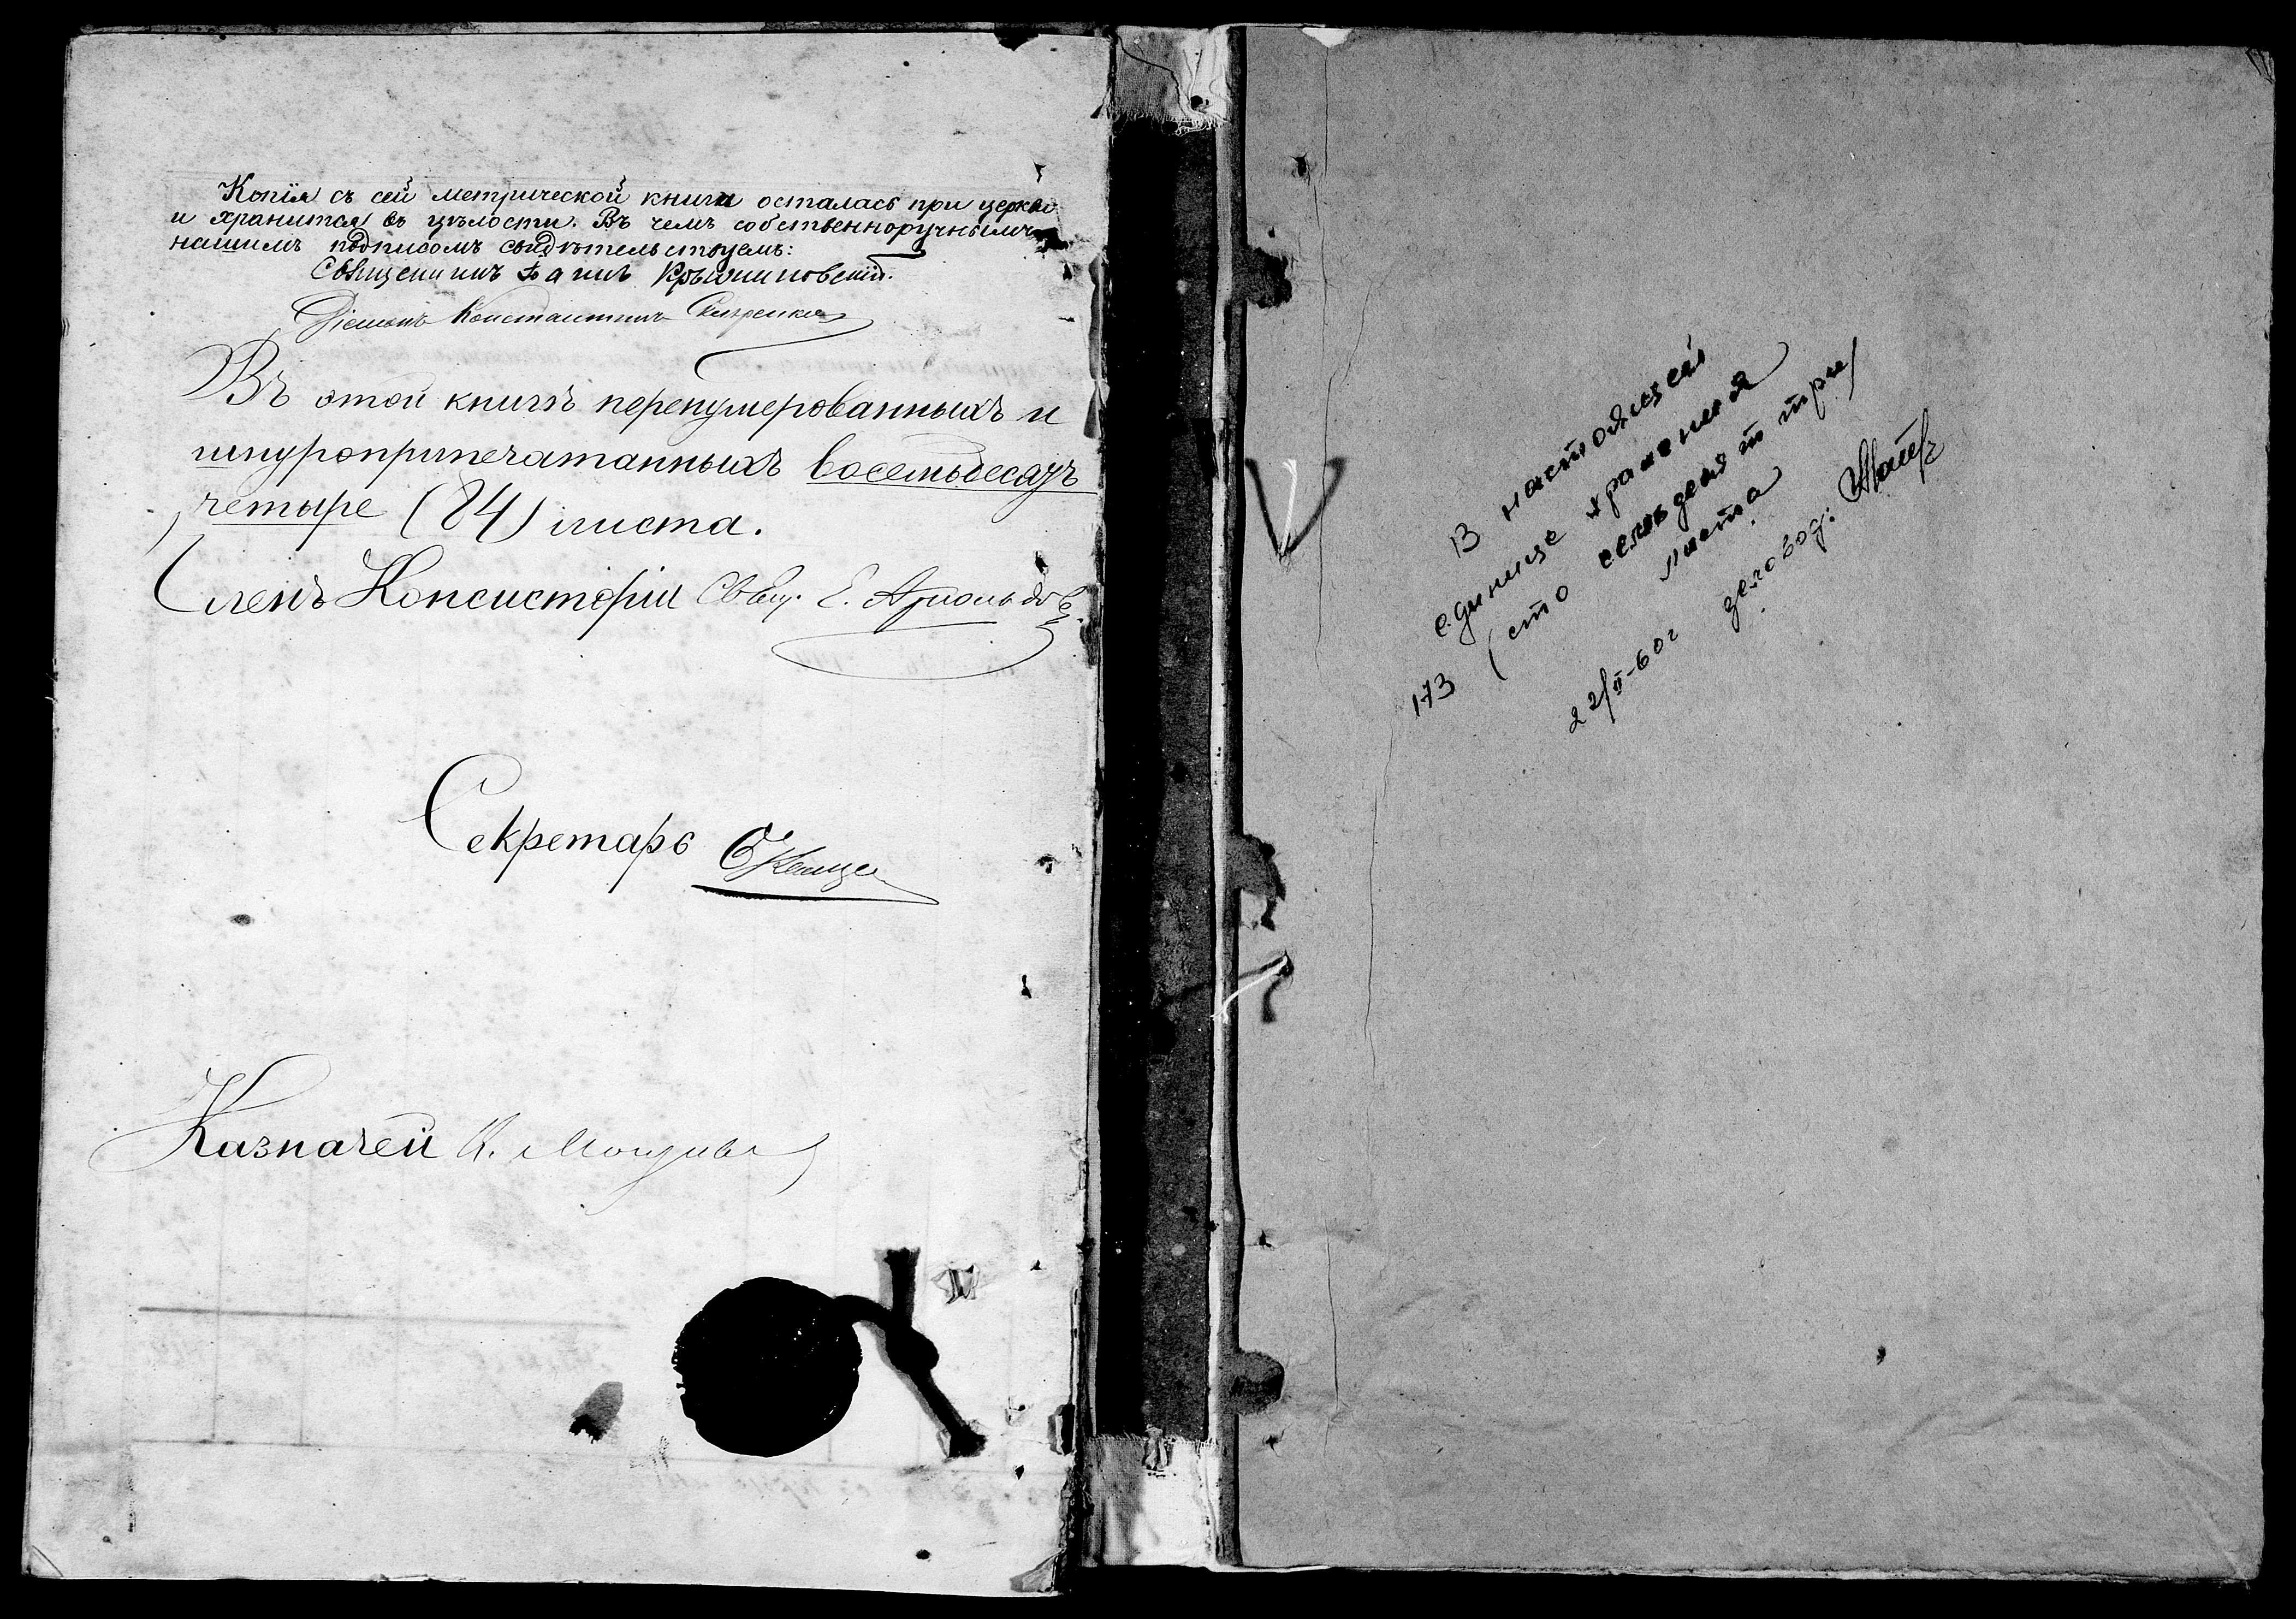 Копія съ сей метрической книги осталась при церкви
и хранится въ цѣлости. Въ чемъ собственноручнымъ
нашимъ подписомъ свидѣтельствуемъ:
Священникъ
Діаконъ Константинъ
Въ этой книгѣ перенумерованныхъ и
шнуроприпечатанныхъ восемьдесятъ
четыре (84) листа.
Членъ Консисторіи Свящ. Е.
Секретарь
Казначей К.
В настоящей
единице хранения
173 (сто семьдесят три)
листа
22/II-60г деловод: